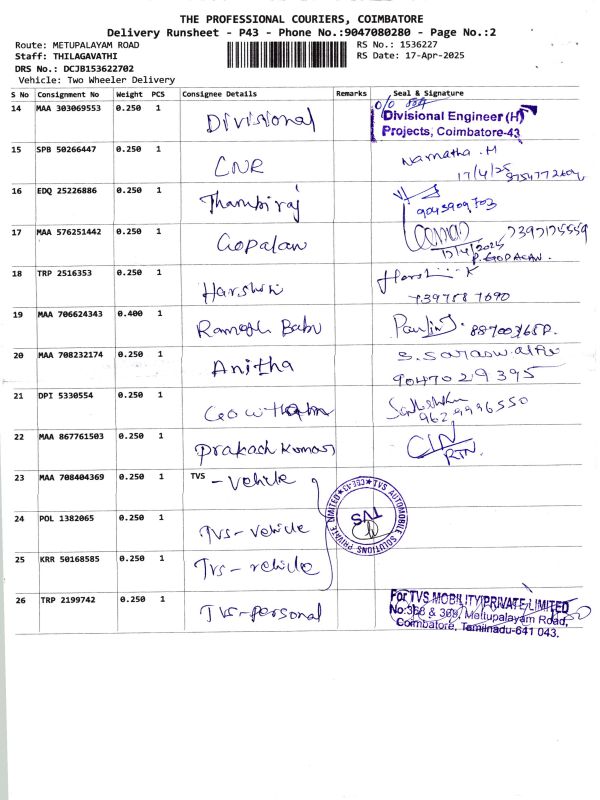 THE PROFESSIONAL COURIERS, COIMBATORE
Delivery Runsheet - P43 - Phone No.:9047080280 - Page No.:2
Route: METUPALAYAM ROAD RS No.: 1536227
Staff: THILAGAVATHI RS Date: 17-Apr-2025
DRS No.: DCJB153622702
Vehicle: Two Wheeler Delivery
S No Consignment No Weight PCS Consignee Details Remarks Seal & Signature
14 MAA 303069553 0.250 1 Divisional O/o
Divisional Engineer (H)
Projects, Coimbatore-43
15 SPB 50266447 0.250 1 CNR Namatha .M
17/4/25
16 EDQ 25226886 0.250 1 Thambiraj
9043909703
17 MAA 576251442 0.250 1 Gopalan
17/4/2025
P. GOPALAN.
18 TRP 2516353 0.250 1 Harshini
7397587690
19 MAA 706624343 0.400 1 Ramesh Babu
20 MAA 708232174 0.250 1 Anitha
9047029395
21 DPI 5330554 0.250 1 Gowtham
9629996550
22 MAA 867761503 0.250 1 Prakash Kumar
RTN.
23 MAA 708404369 0.250 1 TVS - vehicle
TVS AUTOMOBILE SOLUTIONS PRIVATE LIMITED
TVS
24 POL 1382065 0.250 1 TVS - vehicle
25 KRR 50168585 0.250 1 TVS - vehicle
26 TRP 2199742 0.250 1 TVS - personal
For TVS MOBILITY PRIVATE LIMITED
No:368 & 369, Mettupalayam Road,
Coimbatore, Tamilnadu-641 043.